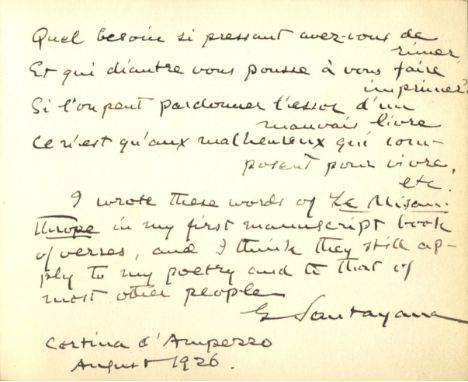 Quel besoin si pressant avez-vous de
rimer,
Et qui diantre vous pousse à vous faire
imprimer?
Si l'on peut pardonner l'essor d'un
mauvais livre
Ce n'est qu'aux malheureux qui com-
posent pour vivre,
etc.
I wrote these words of Le Misan-
thrope in my first manuscript book
of verses, and I think they still ap-
ply to my poetry and to that of
most other people
G Santayana
Cortina d'Ampezzo
August 1926.